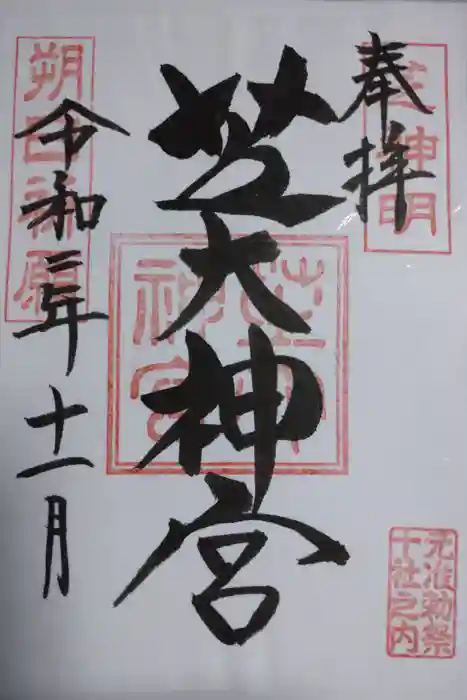 奉拝
芝神明
芝大神宮
芝大神宮
朔日
令和二年十一月
元准勅祭
十社之内